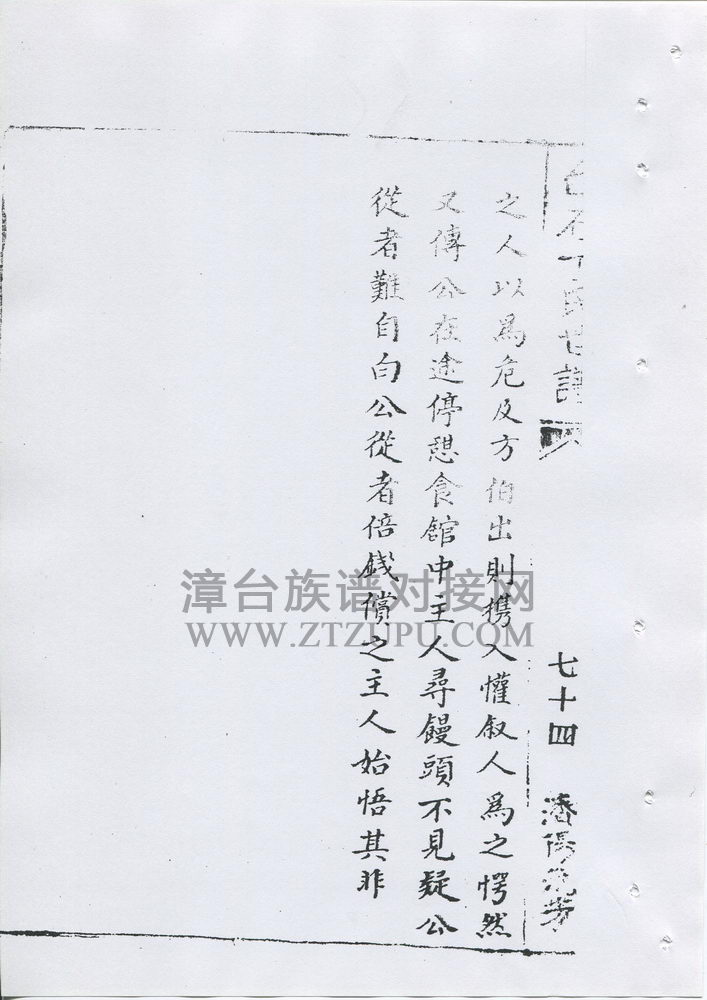 白石丁氏世譜
七十四
之人以為危及方伯出則攜入懽叙人為之愕然
又傳公在途停憩食館中主人尋饅頭不見疑公
從者難自白公從者倍錢償之主人始悟其非
漳台族谱对接网
WWW.ZTZUPU.COM